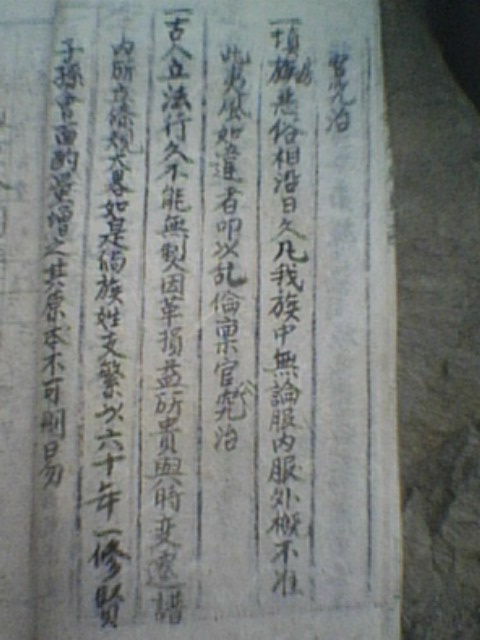 官究治
一填房惡俗相沿日久凡我族中無論服內服外概不准
此夷風如違者叩以乱倫禀官究治
一古人立法行久不能無獘因革損益所貴與時变遷譜
內所立條規大畧如是倘族姓支繁以六十年一修賢
子孫書面酌量增之其原本不可朙易